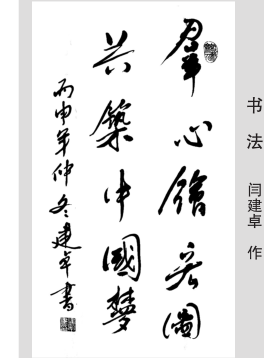 群心绘宏圖
共築中國梦
丙申年仲冬建卓書
书法
闫建卓 作